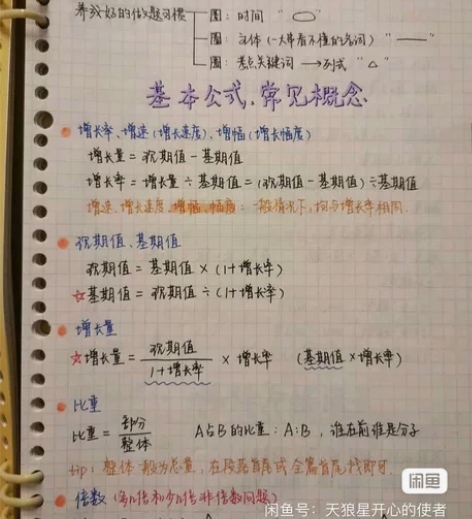 养成好的做题习惯
圈：时间 " ⬭ "
圈：主体（一大串看不懂的名词）" — "
圈：考点关键词 → 列式 " △ "
基本公式、常见概念
增长率、增速（增长速度）、增幅（增长幅度）
增长量 = 现期值 - 基期值
增长率 = 增长量 ÷ 基期值 = (现期值 - 基期值) ÷ 基期值
增速、增长速度、增幅、幅度：一般情况下，均与增长率相同.
现期值、基期值
现期值 = 基期值 × (1+增长率)
☆基期值 = 现期值 ÷ (1+增长率)
增长量
☆增长量 = 现期值 / 1+增长率 × 增长率 （基期值 × 增长率）
比重
比重 = 部分 / 整体 A占B的比重：A÷B，谁在前谁是分子
tip：整体一般为总量，在段落首尾或全篇首尾找即可.
倍数（多几倍和少几倍非倍数问题）
闲鱼
闲鱼号：天狼星开心的使者